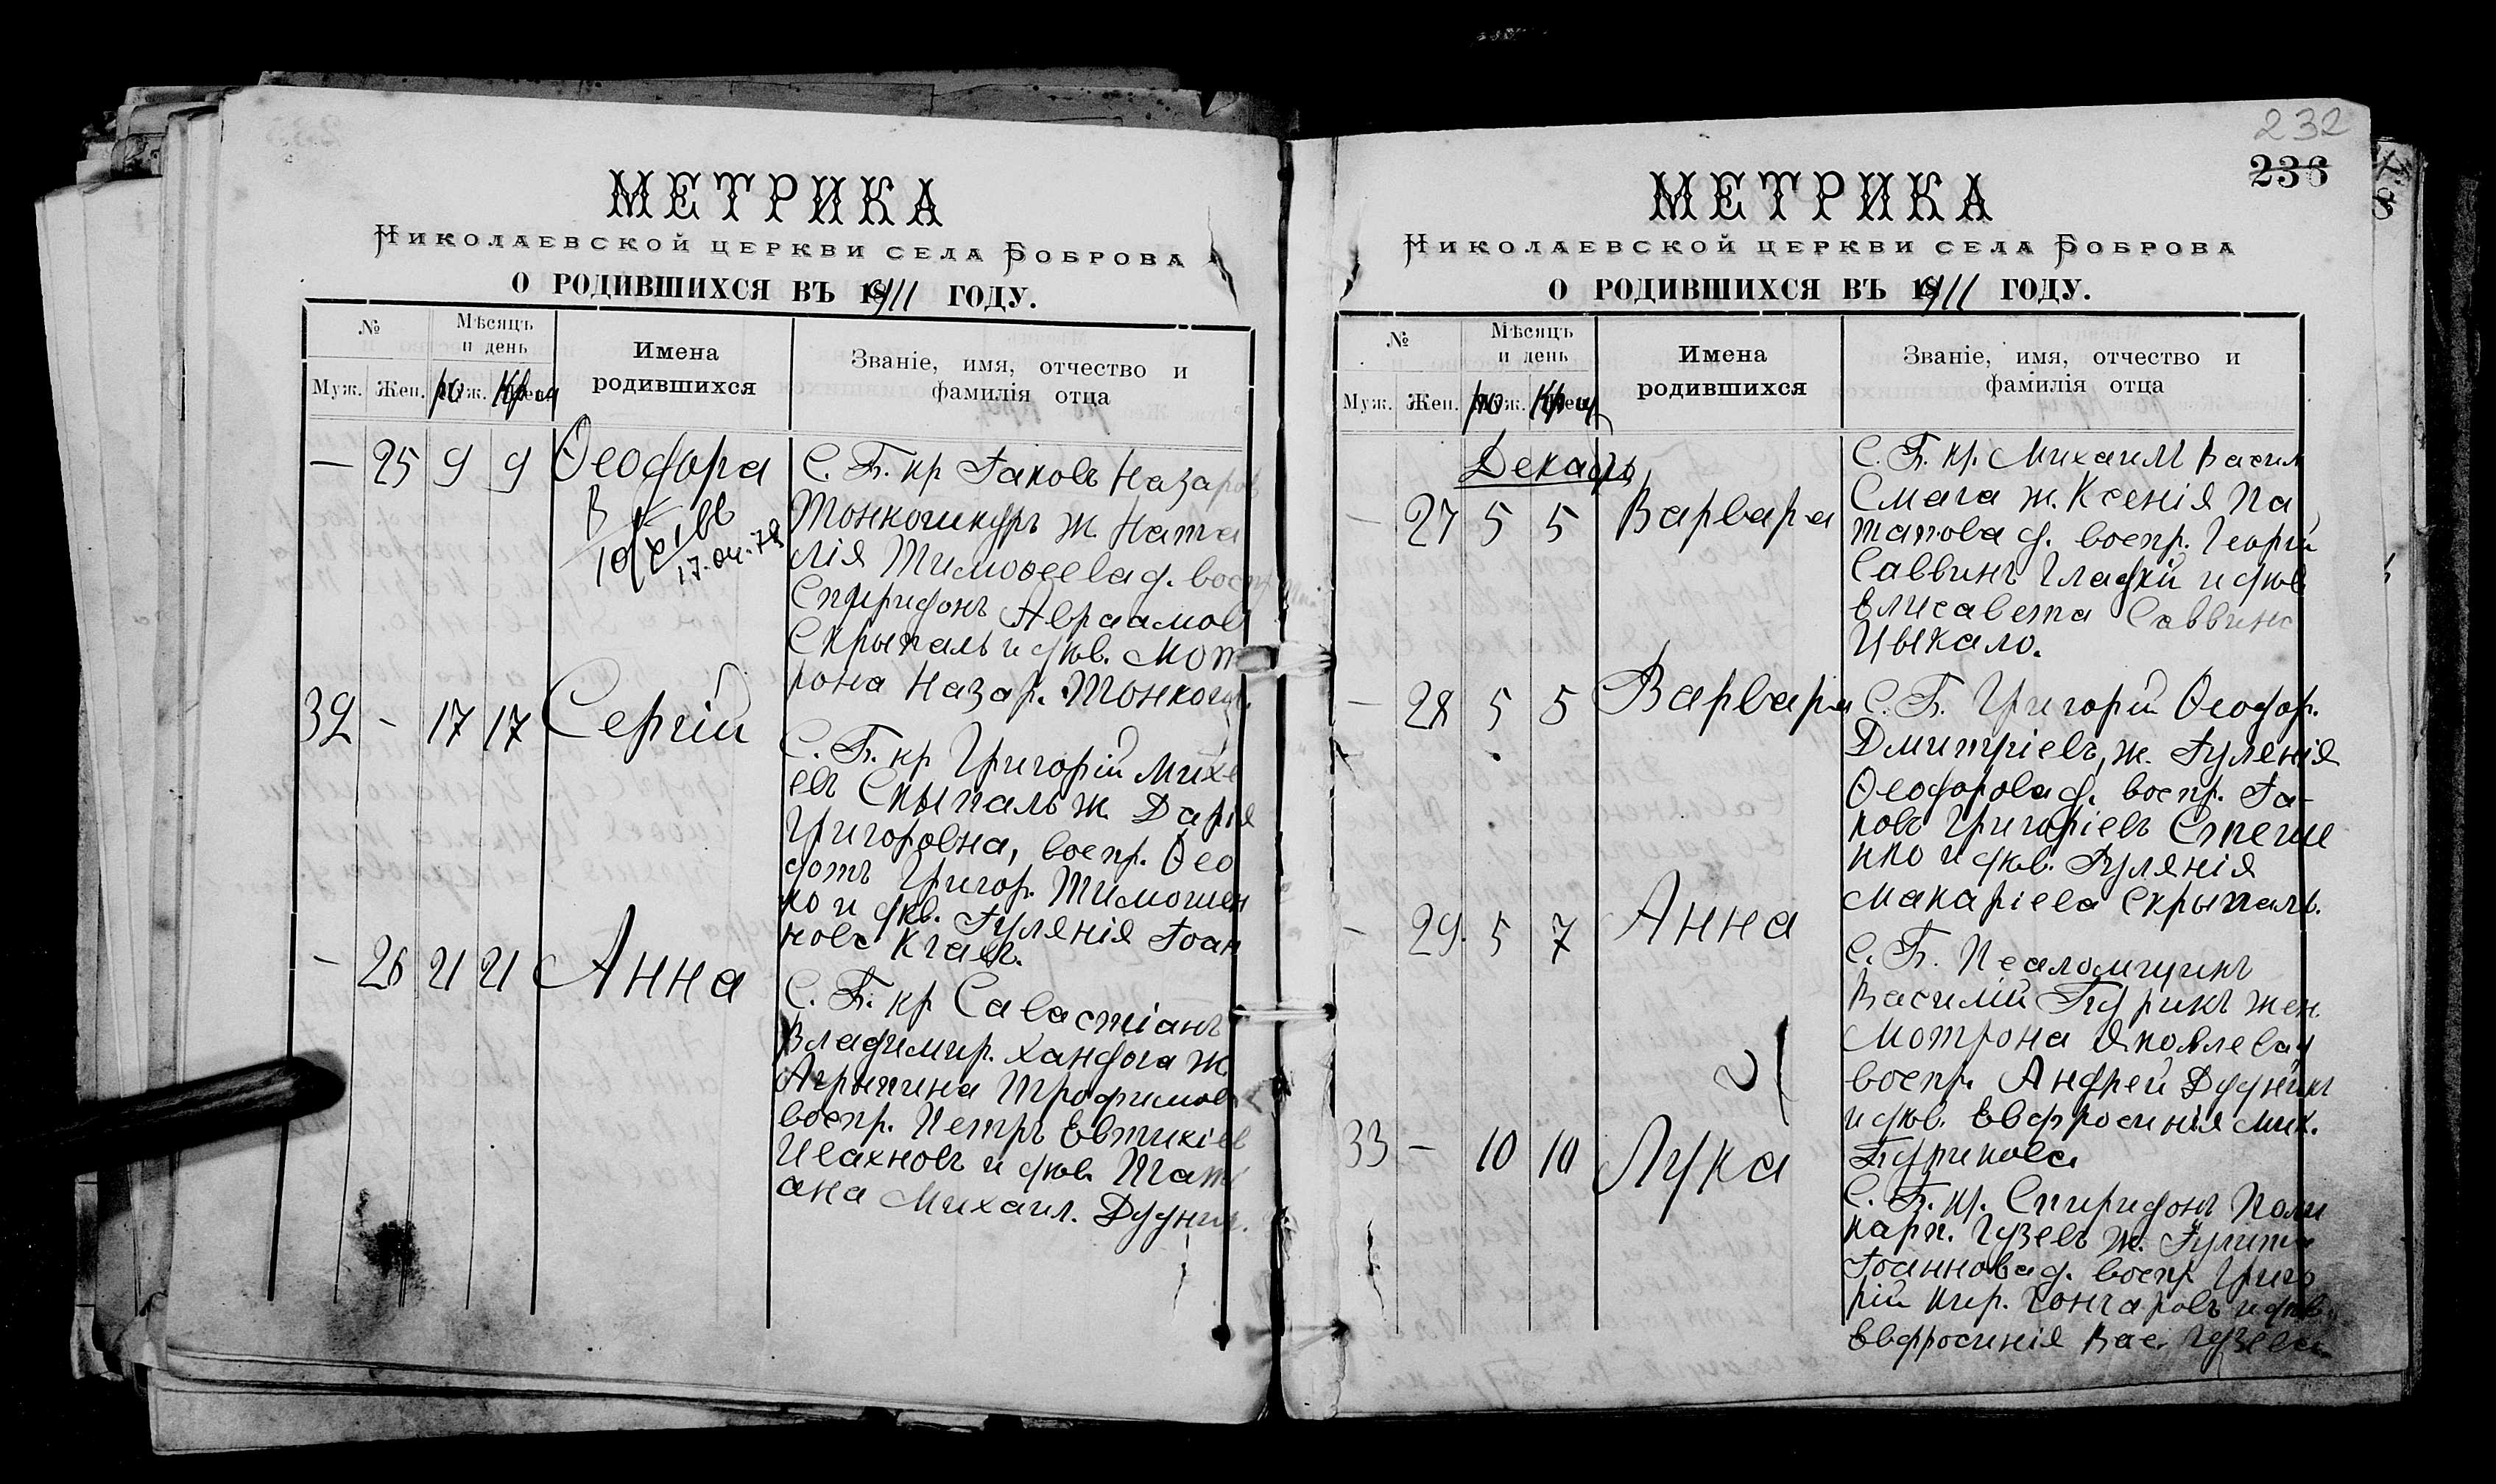 МЕТРИКА
Николаевской церкви села Боброва
О РОДИВШИХСЯ ВЪ 1911 ГОДУ.
№ Мѣсяцъ и день Имена родившихся Званіе, имя, отчество и фамилія отца
Муж. Жен. ро Крещ
— 25 9 9 Ѳеодора
17.04.78
С. Б. кр Іаковъ Назаров
Тонкошкуръ ж. Ната
лія Тимоѳеева д. восп
Спиридонъ Авраамов
Скрыпаль и дѣв. Мот
рона Назар. Тонкош.
32 - 17 17 Сергій
С. Б. кр Григорій Михе
евъ Скыпаль ж. Дарія
Григоровна, воспр. Ѳео
дотъ Григор. Тимошен
ко и дѣв. Іулянія Іоан
нова
— 26 21 21 Анна
С. Б. кр Савастіанъ
Владимир. Хандога ж
Агрыпина Трофимов
воспр. Петръ Евтихіев
Ивахновъ и дѣв. Тати
ана Михаил. Дудник.
232
236
МЕТРИКА
Николаевской церкви села Боброва
О РОДИВШИХСЯ ВЪ 1911 ГОДУ.
№ Мѣсяцъ и день Имена родившихся Званіе, имя, отчество и фамилія отца
Муж. Жен. ро Крещ
Декабр.
— 27 5 5 Варвара
С. Б. кр. Михаилъ Васил
Смага ж. Ксенія Па
тапова д. воспр. Георгій
Саввинъ Гладкій и дѣв
Елисавета Саввина
Цыкало.
— 28 5 5 Варвара
С. Б. Григорій Ѳеодор.
Дмитріевъ, ж. Іулянія
Ѳеодорова д. воспр. Іа-
ковъ Григоріевъ Стеше
нко и дѣв. Іулянія
Макаріева Скрыпаль.
- 29. 5 7 Анна
С. Б. Псаломщикъ
Василій Бурикъ жен.
Мотрона Яковлева д
воспр. Андрей Дудникъ
и дѣв. Евфросинія Мих.
Бурикова
33 — 10 10 Лука
С. Б. кр. Спиридонъ Поли
карп. Гузевъ ж. Іулита
Іоаннова д. воспр Григо
рій Кир. Гончаровъ и дѣв.
Евфросинія Вас. Гузева